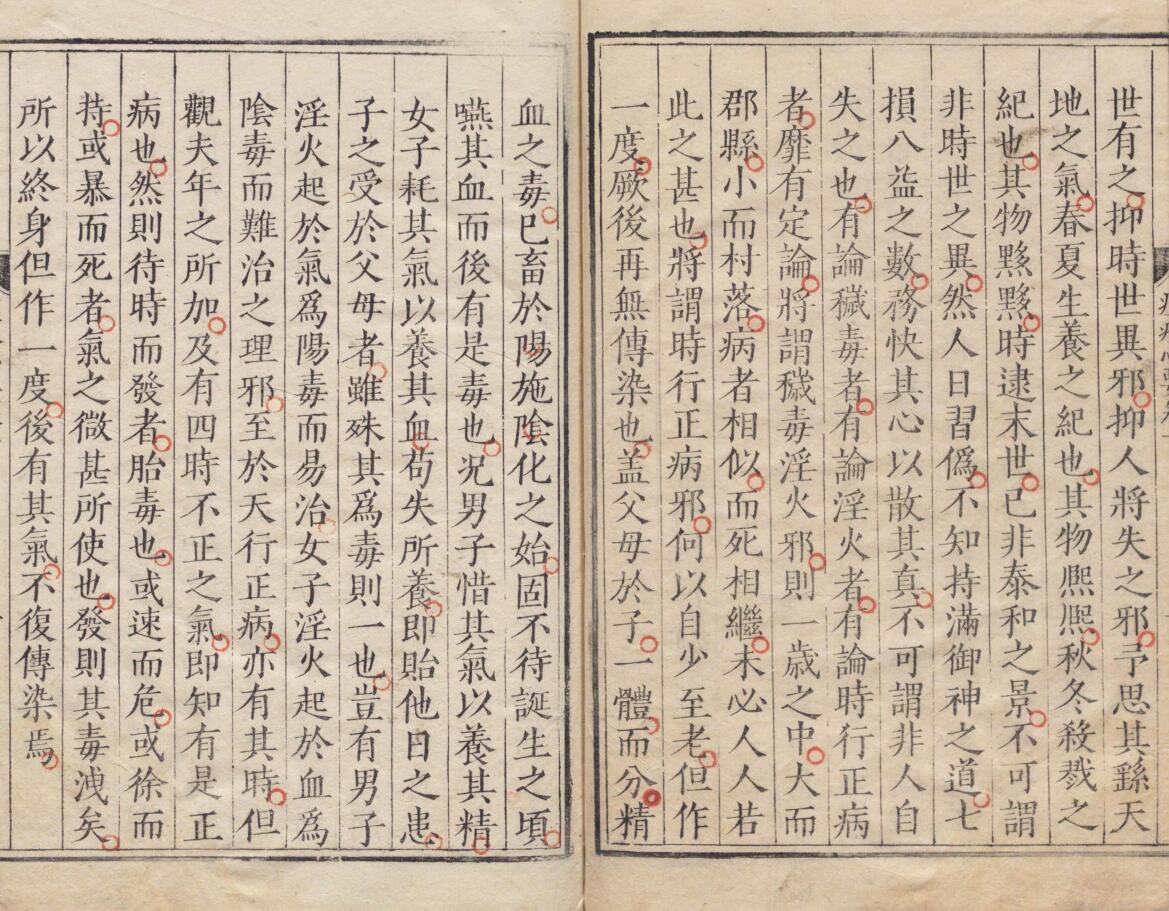 世有之抑時世異邪抑人將失之邪予思其繇天
地之氣春夏生養之紀也其物熈熈秋冬殺戮之
紀也其物黙黙時逮末世已非泰和之景不可謂
非時世之異然人日習僞不知持滿御神之道七
損八益之數務快其心以散其真不可謂非人自
失之也有論穢毒者有論淫火者有論時行正病
者靡有定論將謂穢毒淫火邪則一歲之中大而
郡縣小而村落病者相似而死相繼未必人人若
此之甚也將謂時行正病邪何以自少至老但作
一度厥後再無傳染也盖父母於子一體而分精
血之毒已畜於陽施陰化之始固不待誕生之頃
嚥其血而後有是毒也况男子惜其氣以養其精
女子耗其氣以養其血苟失所養即貽他日之患
子之受於父母者雖殊其爲毒則一也豈有男子
淫火起於氣爲陽毒而易治女子淫火起於血爲
陰毒而難治之理邪至於天行正病亦有其時但
觀夫年之所加及有四時不正之氣即知有是正
病也然則待時而發者胎毒也或速而危或徐而
持或暴而死者氣之微甚所使也發則其毒洩矣
所以終身但作一度後有其氣不復傳染焉